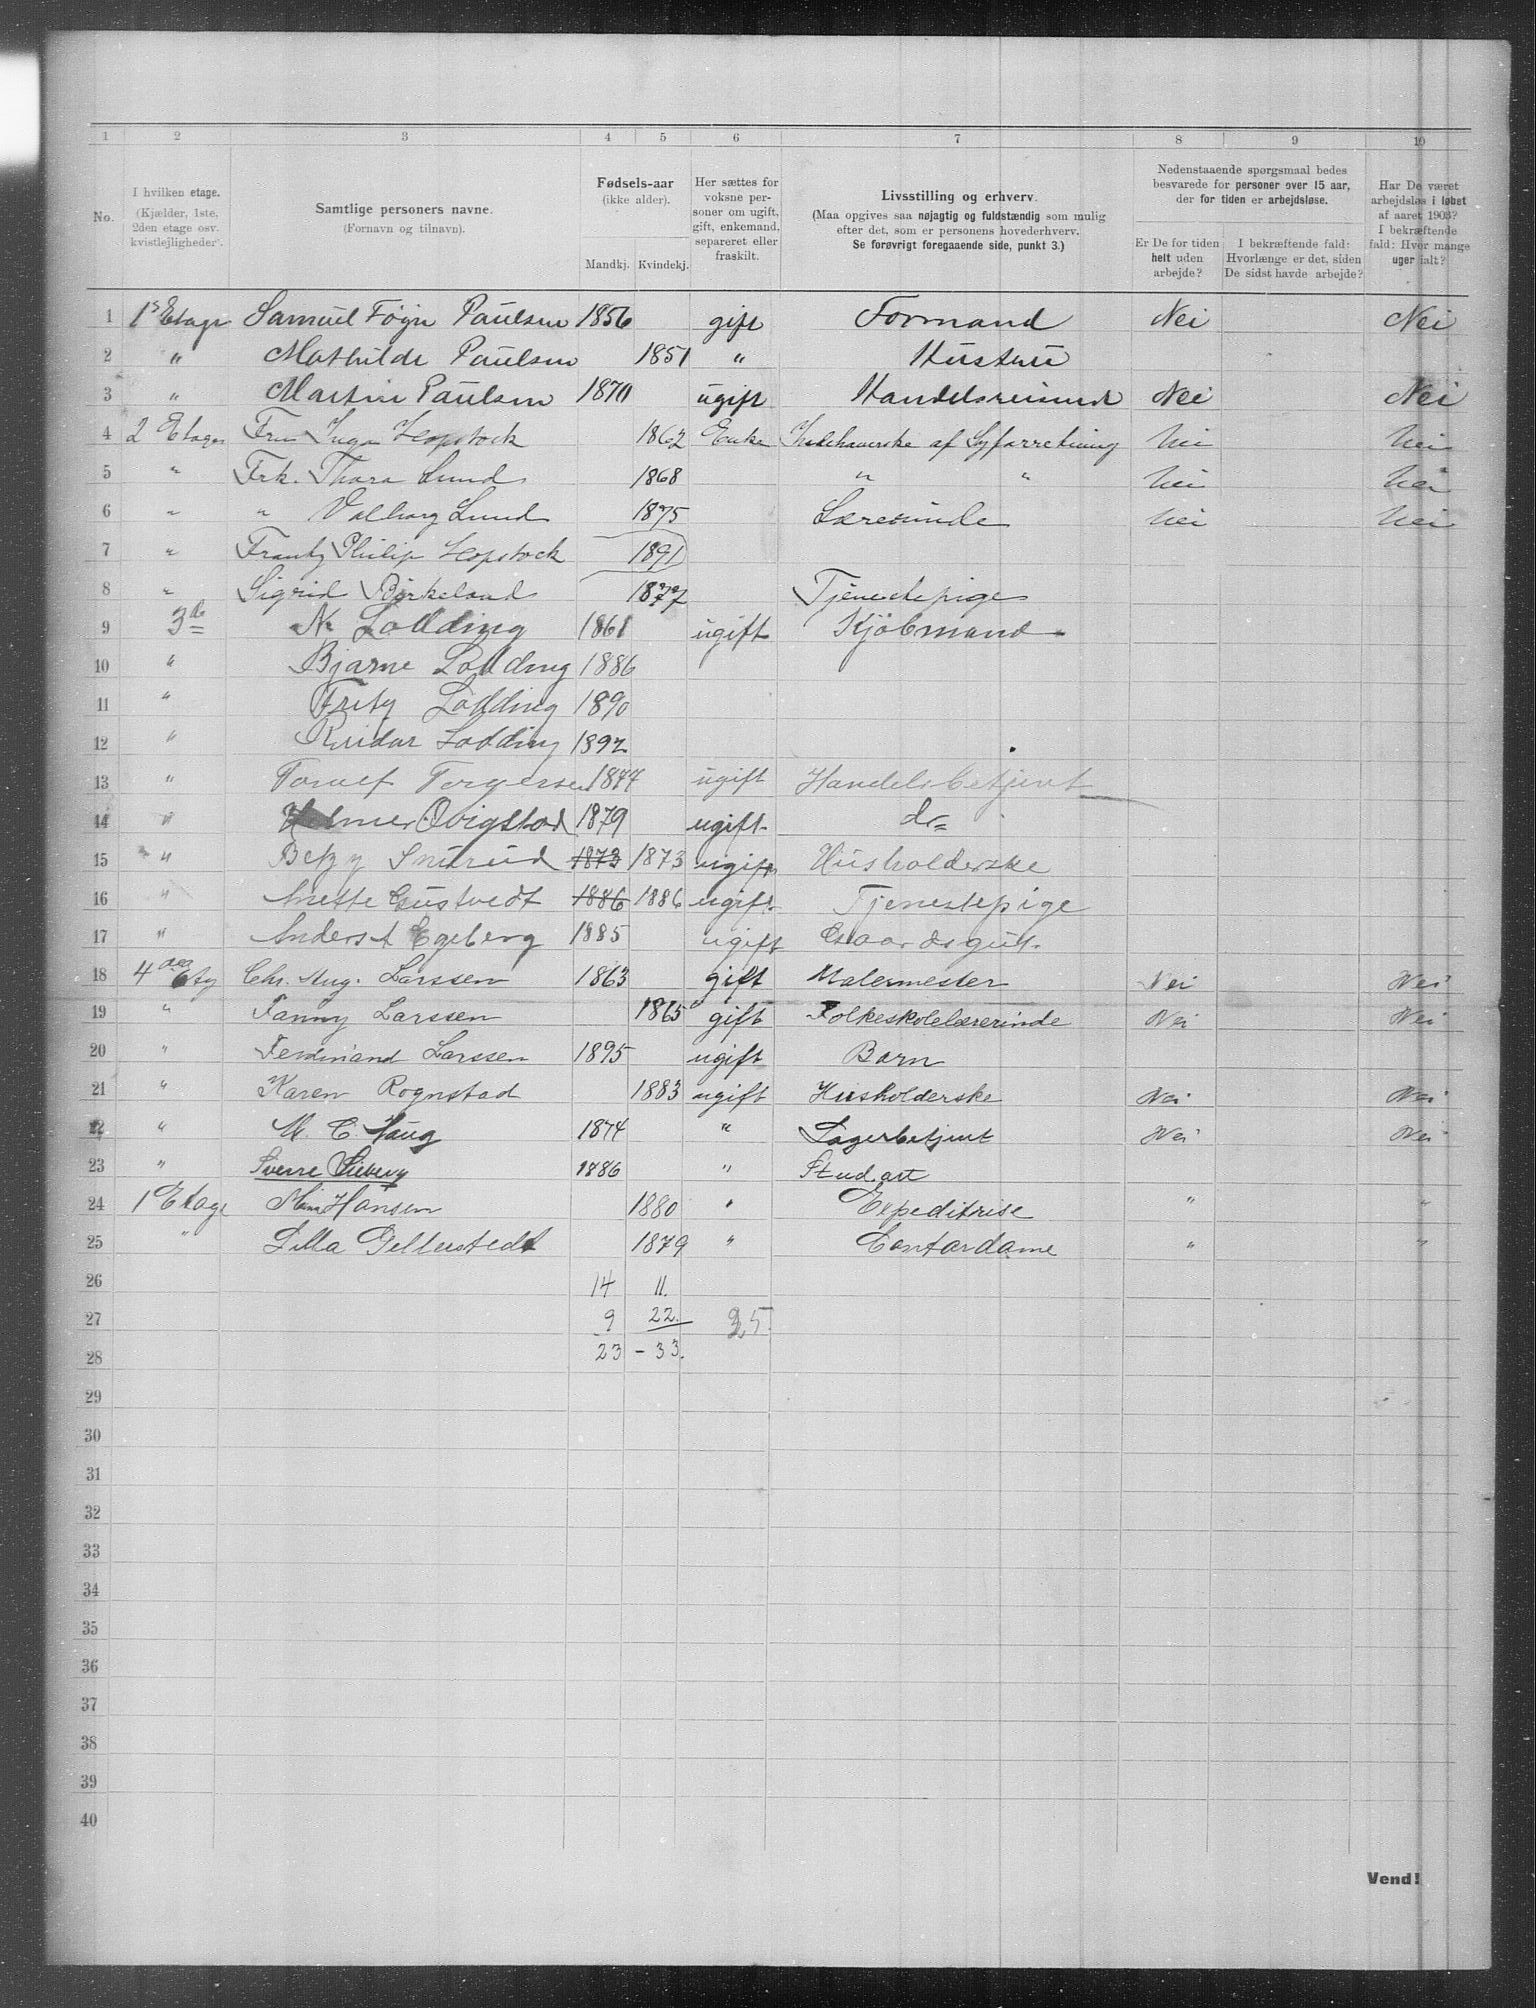 1 2 3 4 5 6 7 8 9 10
No.
I hvilken etage.
(Kjælder, 1ste,
2den etage osv.
kvistlejligheder).
Samtlige personers navne.
(Fornavn og tilnavn).
Fødsels-aar
(ikke alder).
Mandkj. Kvindekj.
Her sættes for
voksne per-
soner om ugift,
gift, enkemand,
separeret eller
fraskilt.
Livsstilling og erhverv.
(Maa opgives saa nøjagtig og fuldstændig som mulig
efter det, som er personens hovederhverv.
Se forøvrigt foregaaende side, punkt 3.)
Nedenstaaende spørgsmaal bedes
besvarede for personer over 15 aar,
der for tiden er arbejdsløse.
Er De for tiden
helt uden
arbejde?
I bekræftende fald:
Hvorlænge er det, siden
De sidst havde arbejde?
Har De været
arbejdsløs i løbet
af aaret 1903?
I bekræftende
fald: Hvor mange
uger ialt?
1 1s Etage Samuel Føyn Paulsen 1856 gift Formand Nei Nei
2 " Mathilde Paulsen 1851 " Hustru
3 " Martin Paulsen 1870 ugift Handelsreisende Nei Nei
4 2 Etage Fru Inga Hopstock 1862 Enke Indehaverske af Syforretning Nei Nei
5 " Frk. Thora Lund 1868 " " Nei Nei
6 " " Valborg Lund 1875 Lærerinde Nei Nei
7 " Frantz Philip Hopstock 1891
8 " Sigrid Birkeland 1877 Tjenestepige
9 3d N. Lodding 1861 ugift Kjöbmand
10 " Bjarne Lodding 1886
11 " Fritz Lodding 1890
12 " Reidar Lodding 1892
13 " Toralf Torgersen 1877 ugift Handelsbetjent
14 " Qvigstad 1879 ugift do
15 " Betzy Snurud 1873 1873 ugift Husholderske
16 " Anette Gustvedt 1886 1886 ugift Tjenestepige
17 " Anders A Egeberg 1885 ugift Gaardsgut
18 4 Etg Chr. Aug. Larssen 1863 gift Malermester Nei Nei
19 " Fanny Larssen 1865 gift Folkeskolelærerinde Nei Nei
20 " Ferdinand Larssen 1895 ugift Barn
21 " Karen Rognstad 1883 ugift Husholderske Nei Nei
22 " M. C. Haug 1874 " Lagerbetjent Nei Nei
23 " Sverre Sieberg 1886 " Student
24 1 Etage Hansen 1880 " Expeditrise " "
25 " Lilla Gellerstedt 1879 " Contordame " "
26 14 11.
27 9 22. 25.
28 23 - 33.
29
30
31
32
33
34
35
36
37
38
39
40
Vend!